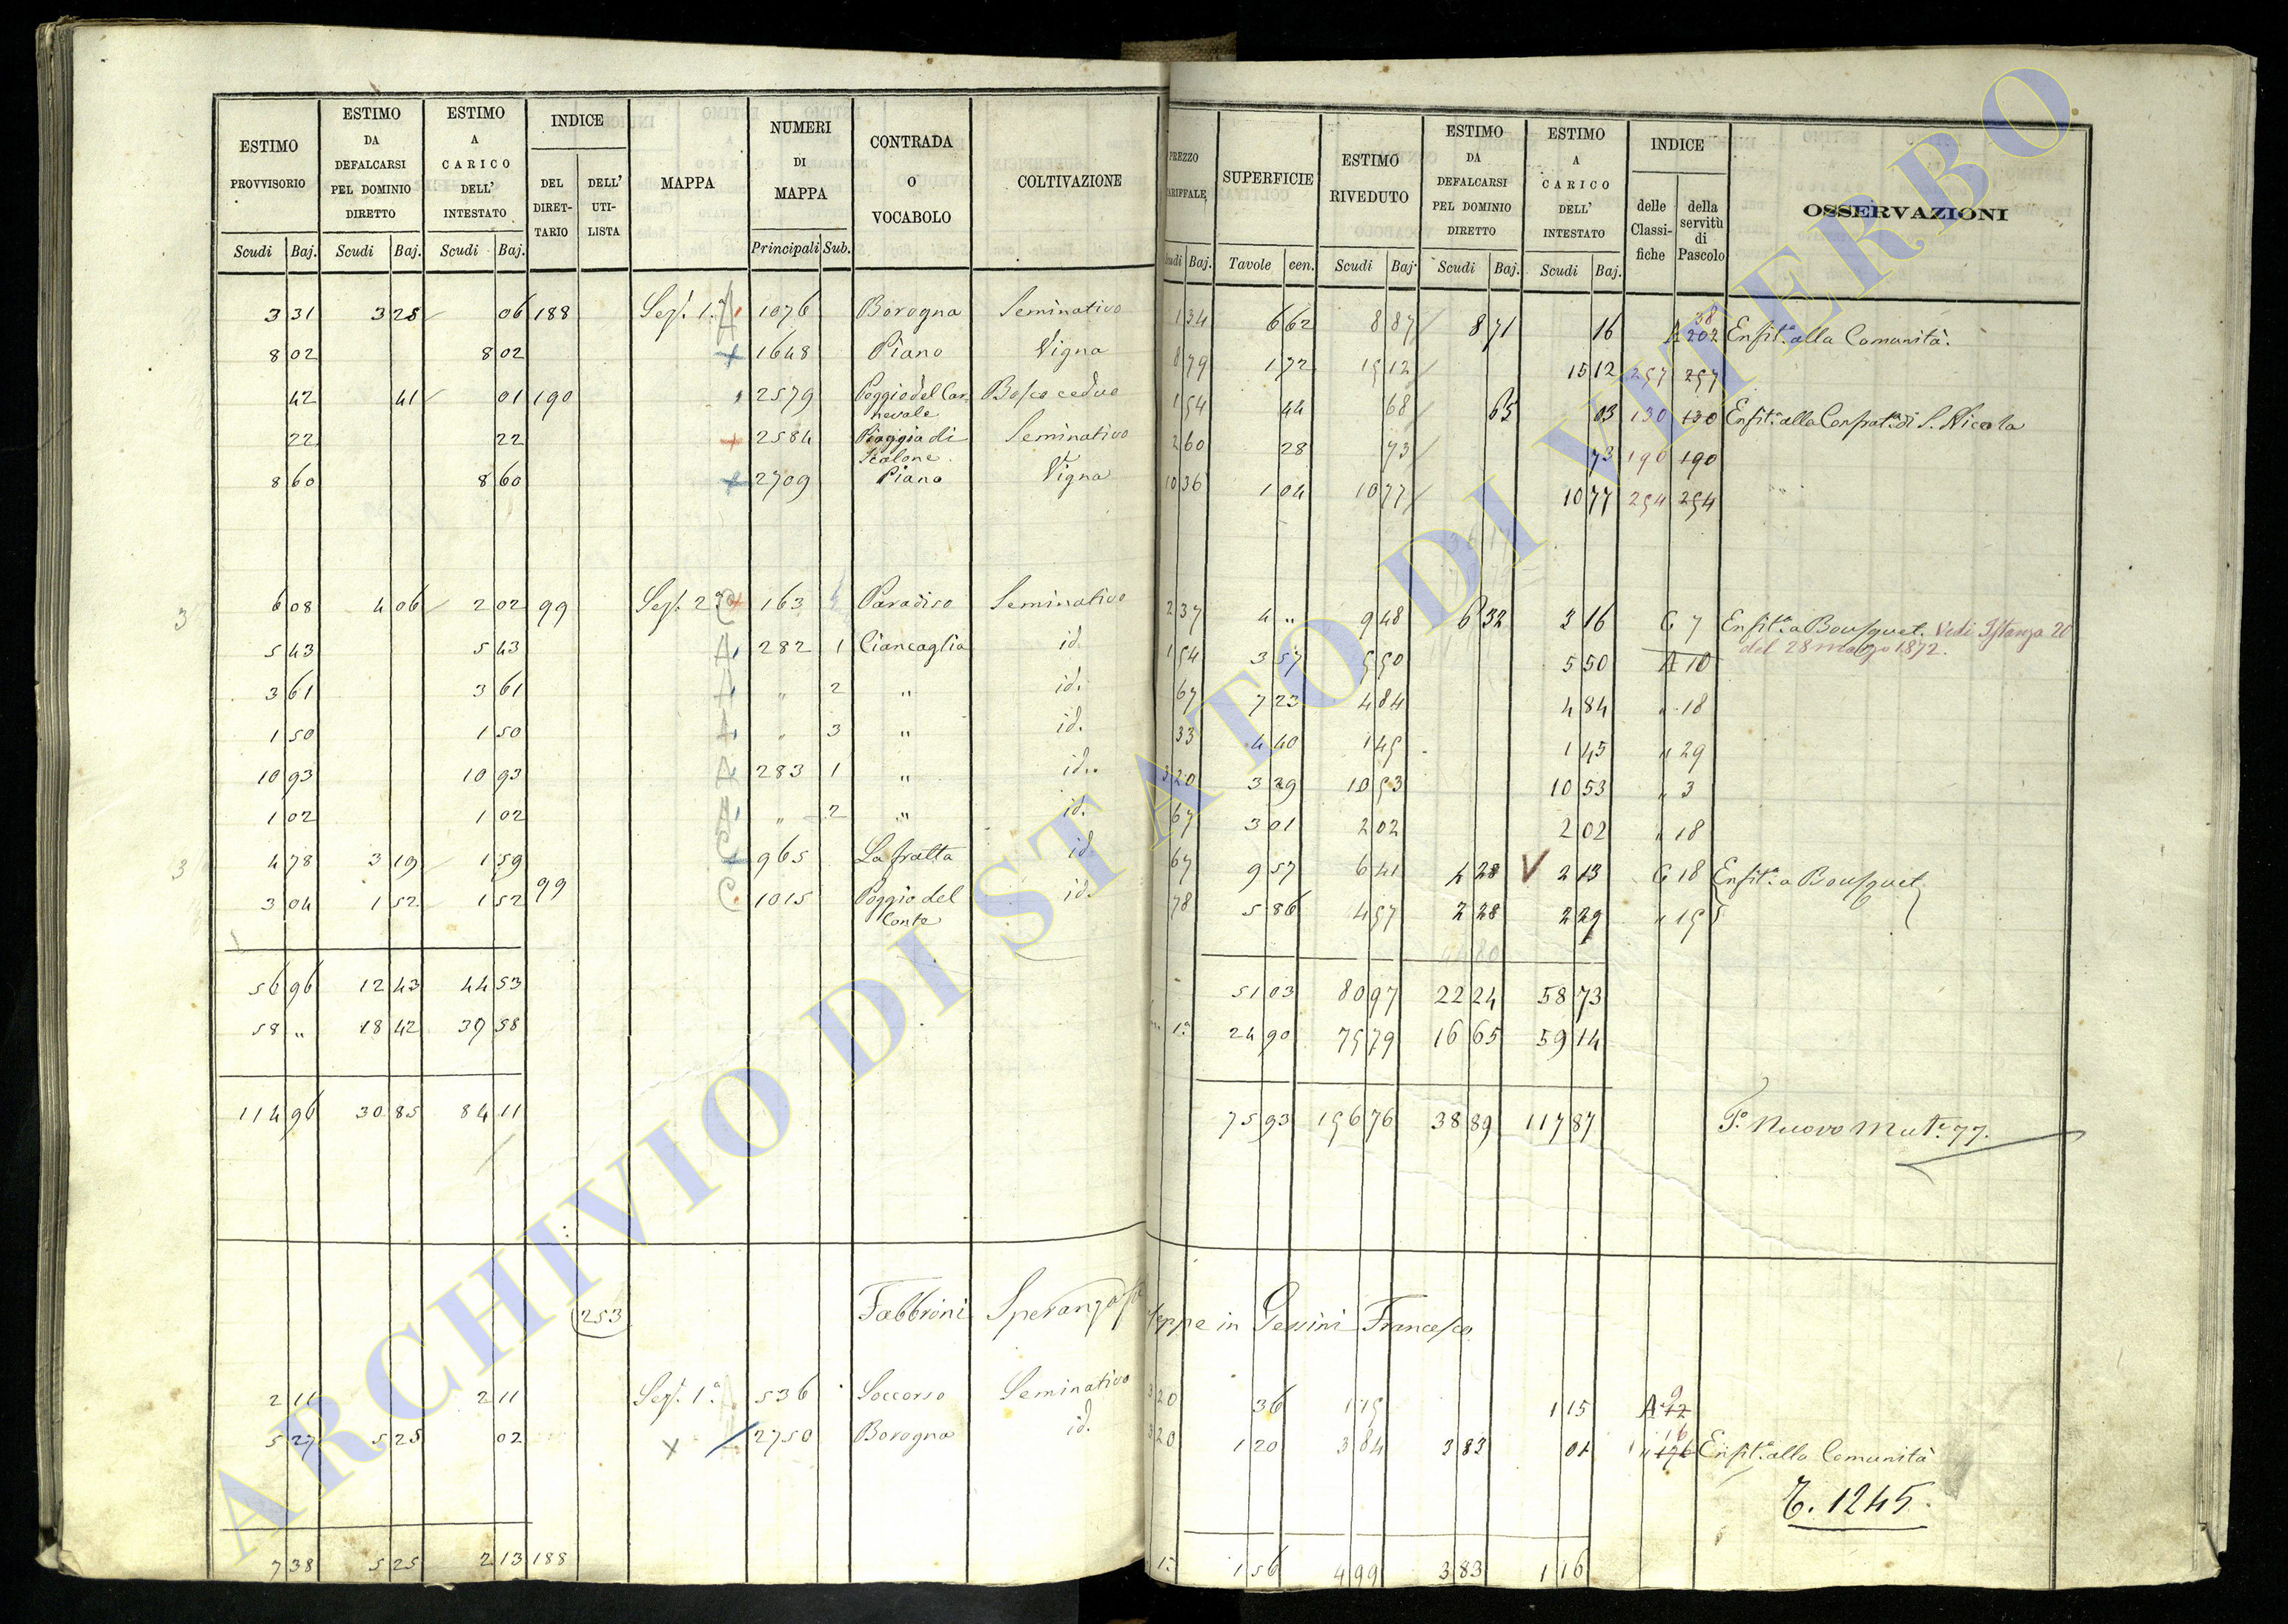 ESTIMO PROVVISORIO | ESTIMO DA DEFALCARSI PEL DOMINIO DIRETTO | ESTIMO A CARICO DELL' INTESTATO | INDICE | MAPPA | NUMERI DI MAPPA | CONTRADA O VOCABOLO | COLTIVAZIONE | PREZZO TARIFFALE, | SUPERFICIE | ESTIMO RIVEDUTO | ESTIMO DA DEFALCARSI PEL DOMINIO DIRETTO | ESTIMO A CARICO DELL' INTESTATO | INDICE | OSSERVAZIONI
DEL DIRET-TARIO | DELL' UTI-LISTA | delle Classi-fiche | della servitù di Pascolo
Scudi | Baj. | Scudi | Baj. | Scudi | Baj. | Principali | Sub. | Scudi | Baj. | Tavole | cen. | Scudi | Baj. | Scudi | Baj. | Scudi | Baj.
3 31 | 3 28 | 06 | 188 | Sez. 1.a | 1076 | Borogna | Seminativo | 1 34 | 6 62 | 8 87 | 8 71 | 16 | A 38 202 | Enfit.a alla Comunità.
8 02 | 8 02 | 1648 | Piano | Vigna | 8 79 | 1 72 | 15 12 | 15 12 | 257 | 257
42 | 41 | 01 | 190 | 2579 | Poggio del Carnevale | Bosco ceduo | 1 54 | 44 | 68 | 65 | 03 | 130 | 130 | Enfit.a alla Confrat.a di S. Nicola
22 | 22 | 2584 | Piaggia di Scalone | Seminativo | 2 60 | 28 | 73 | 73 | 190 | 190
8 60 | 8 60 | 2709 | Piano | Vigna | 10 36 | 1 04 | 10 77 | 10 77 | 254 | 254
3 | 6 08 | 4 06 | 2 02 | 99 | Sez. 2.a C | 163 | Paradiso | Seminativo | 2 37 | 4 " | 9 48 | 6 32 | 3 16 | C 7 | Enfit.a a Bousquet. Vedi Istanza 20 del 28 marzo 1872.
5 43 | 5 43 | A | 282 | 1 | Ciancaglia | id. | 1 54 | 3 57 | 5 50 | 5 50 | A 10
3 61 | 3 61 | A | " | 2 | " | id. | 67 | 7 23 | 4 84 | 4 84 | " 18
1 50 | 1 50 | A | " | 3 | " | id. | 33 | 4 40 | 1 45 | 1 45 | " 29
10 93 | 10 93 | A | 283 | 1 | " | id. | 3 20 | 3 29 | 10 53 | 10 53 | " 3
1 02 | 1 02 | A | " | 2 | " | id. | 67 | 3 01 | 2 02 | 2 02 | " 18
3 | 4 78 | 3 19 | 1 59 | C | 965 | La fratta | id | 67 | 9 57 | 6 41 | 4 28 | V | 2 13 | C 18 | Enfit.a a Bousquet
3 04 | 1 52 | 1 52 | 99 | C | 1015 | Poggio del Conte | id. | 78 | 5 86 | 4 57 | 2 28 | 2 29 | " 15
56 96 | 12 43 | 44 53 | 51 03 | 80 97 | 22 24 | 58 73
58 " | 18 42 | 39 58 | 1.a | 24 90 | 75 79 | 16 65 | 59 14
114 96 | 30 85 | 84 11 | 75 93 | 156 76 | 38 89 | 117 87 | P.o Nuovo Mut.e 77.
253 | Fabbroni Speranza in Gessini Francesco
2 11 | 2 11 | Sez. 1.a | 536 | Soccorso | Seminativo | 3 20 | 36 | 1 15 | 1 15 | A 9 12
5 27 | 5 25 | 02 | x | 2750 | Borogna | id. | 3 20 | 1 20 | 3 84 | 3 83 | 01 | " 16 176 | Enfit.a alla Comunità
T. 1245.
7 38 | 5 25 | 2 13 | 188 | 1 56 | 4 99 | 3 83 | 1 16
ARCHIVIO DI STATO DI VITERBO